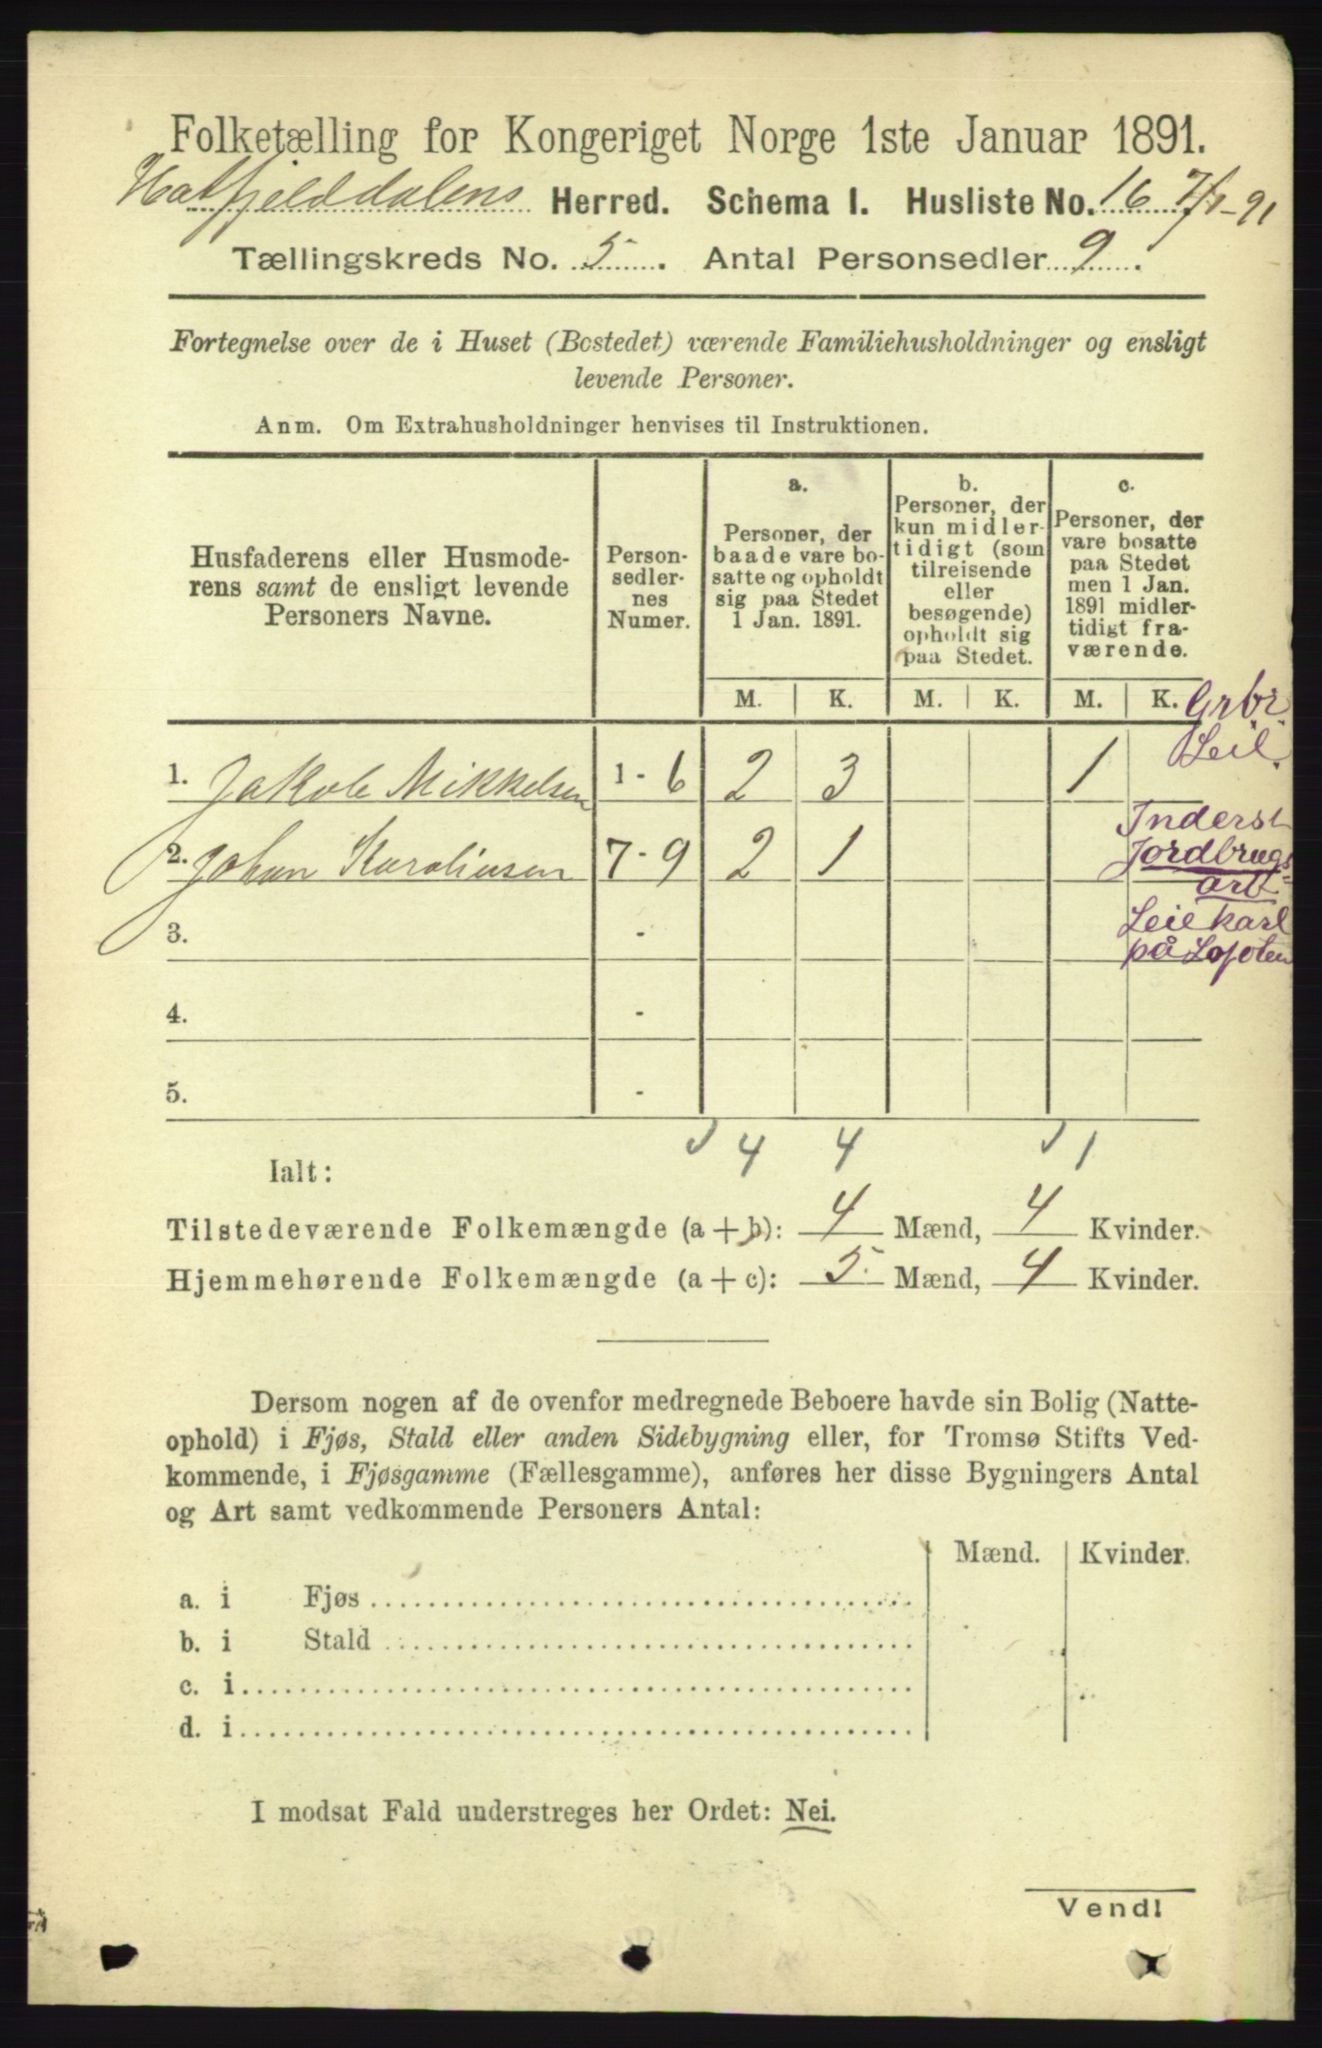 Folketælling for Kongeriget Norge 1ste Januar 1891.
Hatfjelddalens Herred. Schema I. Husliste No. 16 7/1-91
Tællingskreds No. 5. Antal Personsedler 9.
Fortegnelse over de i Huset (Bostedet) værende Familiehusholdninger og ensligt
levende Personer.
Anm. Om Extrahusholdninger henvises til Instruktionen.
Husfaderens eller Husmode-
rens samt de ensligt levende
Personers Navne.
Person-
sedler-
nes
Numer.
a.
Personer, der
baade vare bo-
satte og opholdt
sig paa Stedet
1 Jan. 1891.
b.
Personer, der
kun midler-
tidigt (som
tilreisende
eller
besøgende)
opholdt sig
paa Stedet.
c.
Personer, der
vare bosatte
paa Stedet
men 1 Jan.
1891 midler-
tidigt fra-
værende.
M. K. M. K. M. K.
Grbr.
Leil.
1. Jakob Mikkelsen 1 - 6 2 3 1
Inderst
Jordbrugs=
arb
2. Johan Karoliusen 7 - 9 2 1
Leiekarl
på Lofoten
3. -
4. -
5. -
4 4 1
Ialt:
Tilstedeværende Folkemængde (a + b): 4 Mænd, 4 Kvinder.
Hjemmehørende Folkemængde (a + c): 5 Mænd, 4 Kvinder.
Dersom nogen af de ovenfor medregnede Beboere havde sin Bolig (Natte-
ophold) i Fjøs, Stald eller anden Sidebygning eller, for Tromsø Stifts Ved-
kommende, i Fjøsgamme (Fællesgamme), anføres her disse Bygningers Antal
og Art samt vedkommende Personers Antal:
Mænd. Kvinder.
a. i Fjøs
b. i Stald
c. i
d. i
I modsat Fald understreges her Ordet: Nei.
Vend!